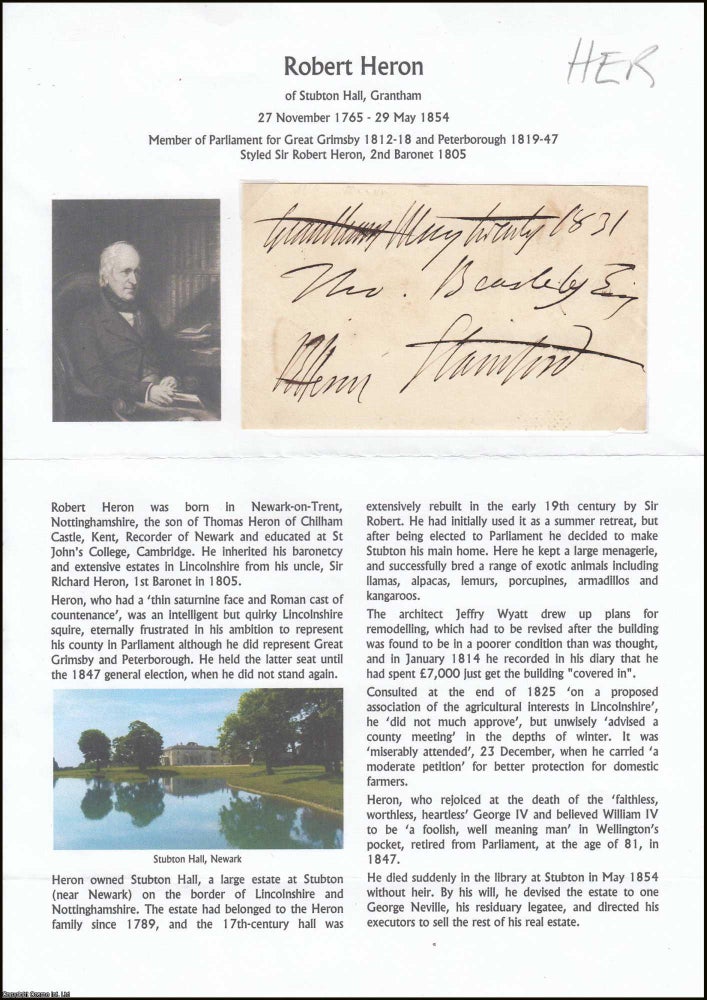 Robert Heron
HER
of Stubton Hall, Grantham
27 November 1765 - 29 May 1854
Member of Parliament for Great Grimsby 1812-18 and Peterborough 1819-47
Styled Sir Robert Heron, 2nd Baronet 1805
Grantham May twenty 1831
Tho. Beasley Esq
RHeron Stamford
Robert Heron was born in Newark-on-Trent,
Nottinghamshire, the son of Thomas Heron of Chilham
Castle, Kent, Recorder of Newark and educated at St
John's College, Cambridge. He inherited his baronetcy
and extensive estates in Lincolnshire from his uncle, Sir
Richard Heron, 1st Baronet in 1805.
Heron, who had a 'thin saturnine face and Roman cast of
countenance', was an intelligent but quirky Lincolnshire
squire, eternally frustrated in his ambition to represent
his county in Parliament although he did represent Great
Grimsby and Peterborough. He held the latter seat until
the 1847 general election, when he did not stand again.
Stubton Hall, Newark
Heron owned Stubton Hall, a large estate at Stubton
(near Newark) on the border of Lincolnshire and
Nottinghamshire. The estate had belonged to the Heron
family since 1789, and the 17th-century hall was
extensively rebuilt in the early 19th century by Sir
Robert. He had initially used it as a summer retreat, but
after being elected to Parliament he decided to make
Stubton his main home. Here he kept a large menagerie,
and successfully bred a range of exotic animals including
llamas, alpacas, lemurs, porcupines, armadillos and
kangaroos.
The architect Jeffry Wyatt drew up plans for
remodelling, which had to be revised after the building
was found to be in a poorer condition than was thought,
and in January 1814 he recorded in his diary that he
had spent £7,000 just get the building "covered in".
Consulted at the end of 1825 'on a proposed
association of the agricultural interests in Lincolnshire',
he 'did not much approve', but unwisely 'advised a
county meeting' in the depths of winter. It was
'miserably attended', 23 December, when he carried 'a
moderate petition' for better protection for domestic
farmers.
Heron, who rejoiced at the death of the 'faithless,
worthless, heartless' George IV and believed William IV
to be 'a foolish, well meaning man' in Wellington's
pocket, retired from Parliament, at the age of 81, in
1847.
He died suddenly in the library at Stubton in May 1854
without heir. By his will, he devised the estate to one
George Neville, his residuary legatee, and directed his
executors to sell the rest of his real estate.
Copyright Cosmo Ltd. Ltd